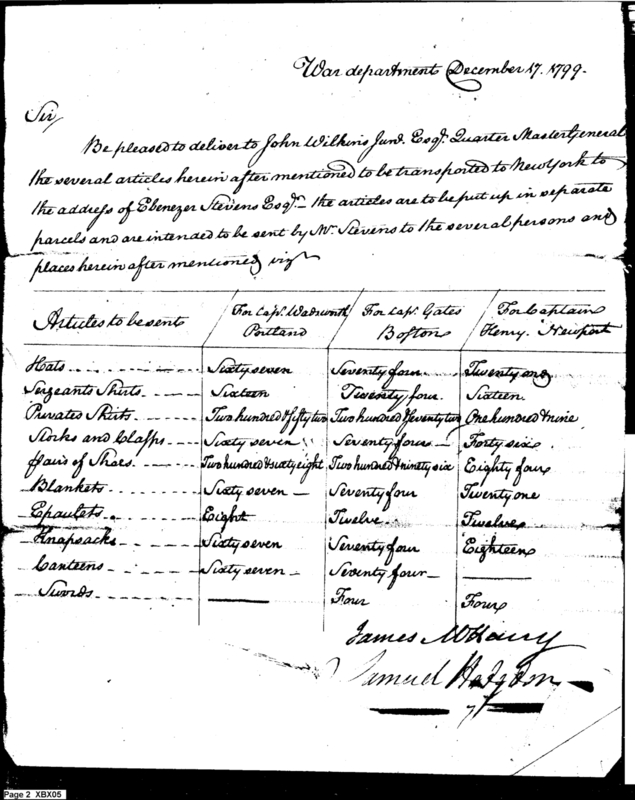 War department December 17. 1799.
Sir,
Be pleased to deliver to John Wilkins Junr. Esqr. Quarter Master General
the several articles herein after mentioned to be transported to New York to
the address of Ebenezer Stevens Esqr. the articles are to be put up in separate
parcels and are intended to be sent by Mr. Stevens to the several persons and
places herein after mentioned vizt
Articles to be sent | For Capt. Wadsworth Portland | For Capt. Gates Boston | For Captain Henry. Newport
Hats | Sixty seven | Seventy four | Twenty one
Sergeants Shirts | Sixteen | Twenty four | Sixteen
Privates Shirts | Two hundred & fifty two | Two hundred & seventy two | One hundred & nine
Stocks and Clasps | Sixty seven | Seventy four | Forty six
Pairs of Shoes | Two hundred & sixty eight | Two hundred & ninety six | Eighty four
Blankets | Sixty seven | Seventy four | Twenty one
Epaulets | Eight | Twelve | Twelve
Knapsacks | Sixty seven | Seventy four | Eighteen
Canteens | Sixty seven | Seventy four | —
Swords | — | Four | Four
James McHenry
Samuel Hodgdon
Page 2 XBX05